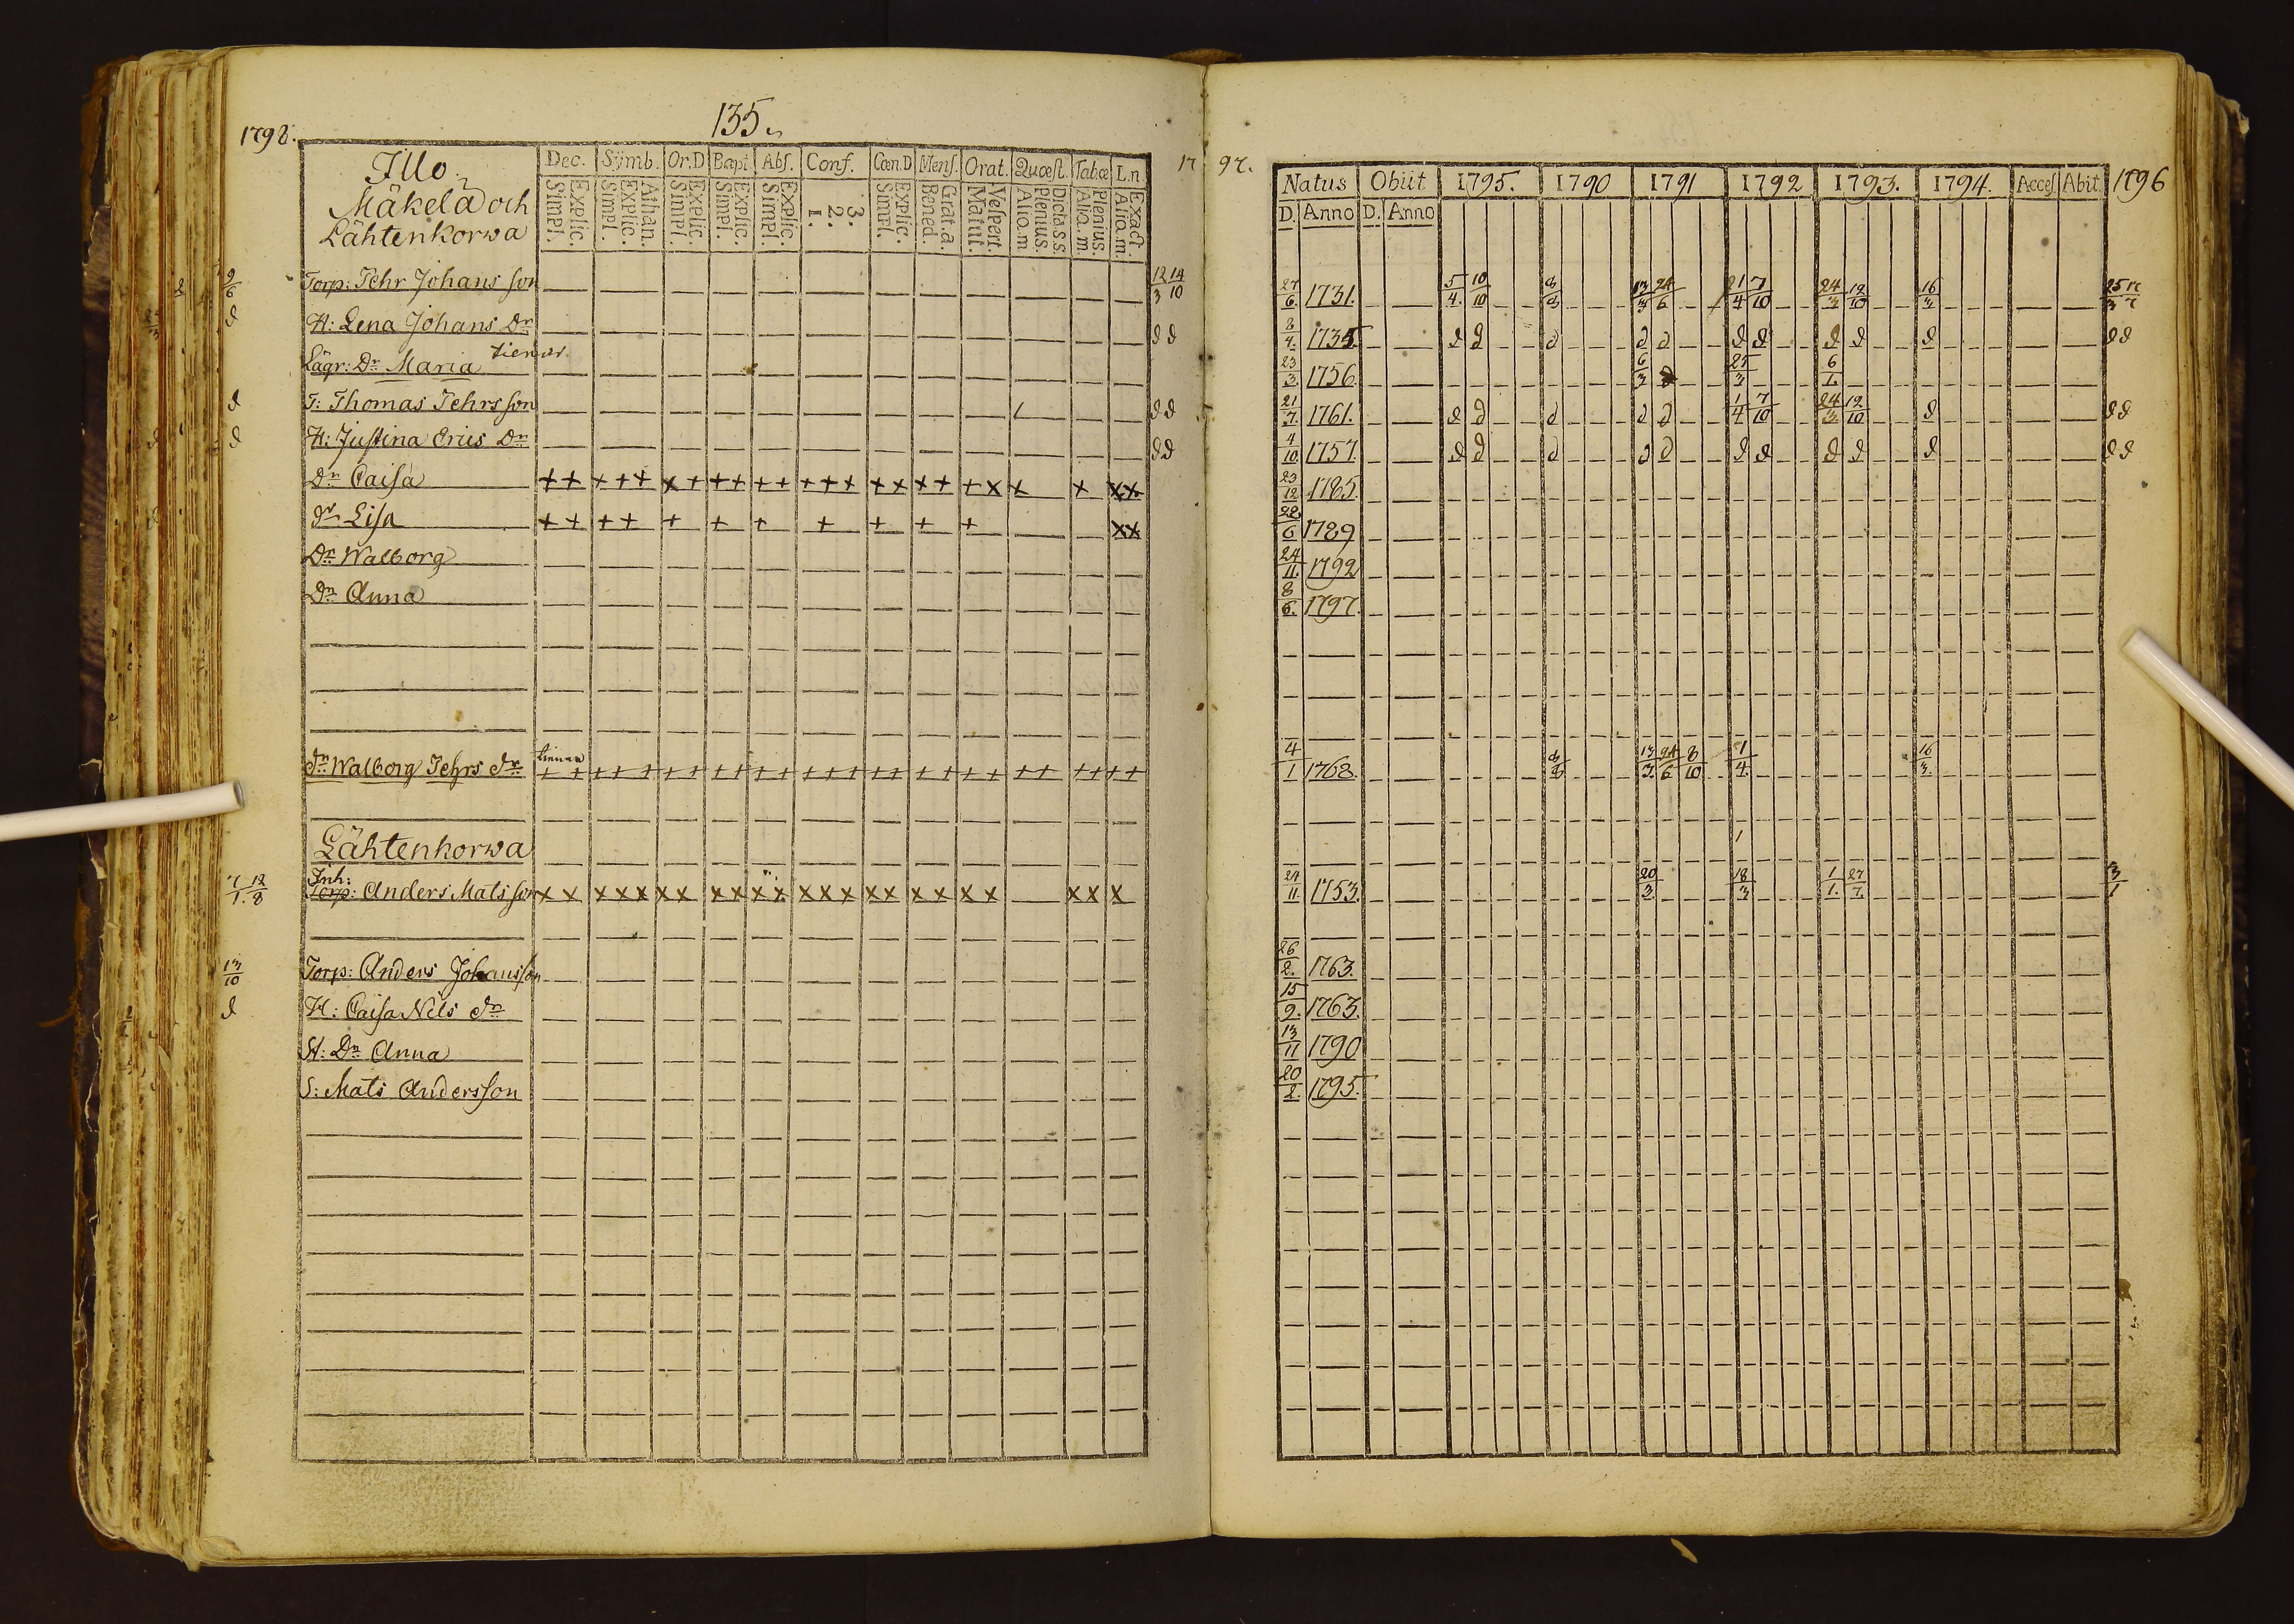 135.
1798.
17 97.
1796
Illo
Mäkelä och
Lähtenkorwa
Dec. Symb. Or.D Bapt Abs. Conf. Cœn.D Mens. Orat. Quæst. Tabœ L.n
Explic. Simpl. Athan. Explic. Simpl. Explic. Simpl. Explic. Simpl. Explic. Simpl. 3. 2. 1. Explic. Simpl. Grat.a. Bened. Vespert. Matut. Dicta s.s. Plenius. Aliq.m Plenius. Aliq.m. Exact Aliq.m.
Natus Obiit 1795. 1790 1791 1792 1793. 1794. Acces. Abit.
D. Anno D. Anno
9/6 Torp: Pehr Johans son 12/3 14/10 27/6. 1731. 5/4. 10/10 8/8 13/3 24/6 21/4 7/10 24/3 12/10 16/3 25/3 17/7
d H: Lena Johans Dr d d 8/4. 1735. d d d d d d d d d d d d
Lägr: Dr Maria tienar 23/3. 1756. 6/3 25/3 6/1.
d T: Thomas Pehrs son d d 21/7. 1761. d d d d d 1/4 7/10 24/3. 12/10 d d d
d H: Justina Erics Dr d d 4/10. 1757. d d d d d d d d d d d d
Dr Caisa ++ +++ ×+ ++ ++ +++ ++ ++ +× × × ×× 23/12 1785.
dr Lisa ++ ++ + + + + + + + ×× 22/6 1789
Dr Walborg 24/11. 1792
Dr Anna 8/6. 1797.
dr Walborg Pehrs dr tienar ++ +++ ++ ++ ++ +++ ++ ++ ++ ++ ++ ++ 4/1 1768. 8/8 13/3. 24/6 8/10 1/4. 16/3.
Lähtenkorwa
Inh:
7/1. 12/8 Torp: Anders Mats son ×× ××× ×× ×× ×× ××× ×× ×× ×× ×× × 24/11. 1753. 20/3. 18/3 1/1. 27/7. 3/1
13/10 Torp: Anders Johansson 26/2. 1763.
d H: Caisa Nils dr 15/9. 1763.
St: Dr Anna 13/11 1790
S: Mats Andersson 20/2. 1795.